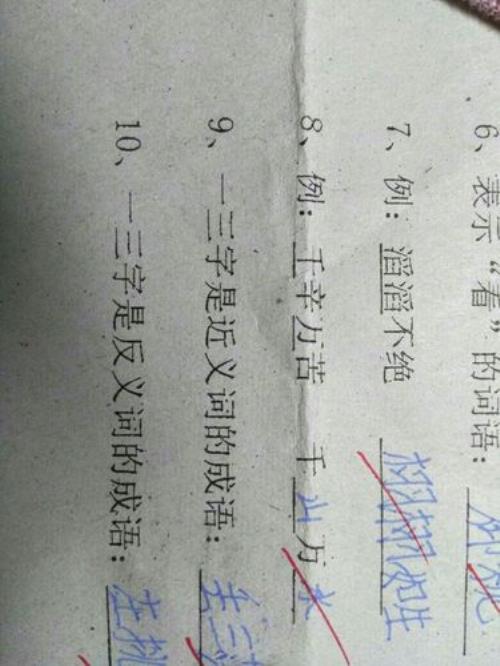 6、表示“看”的词语：
7、例：滔滔不绝 栩栩如生
8、例：千辛万苦 千山万水
9、一三字是近义词的成语：
10、一三字是反义词的成语：